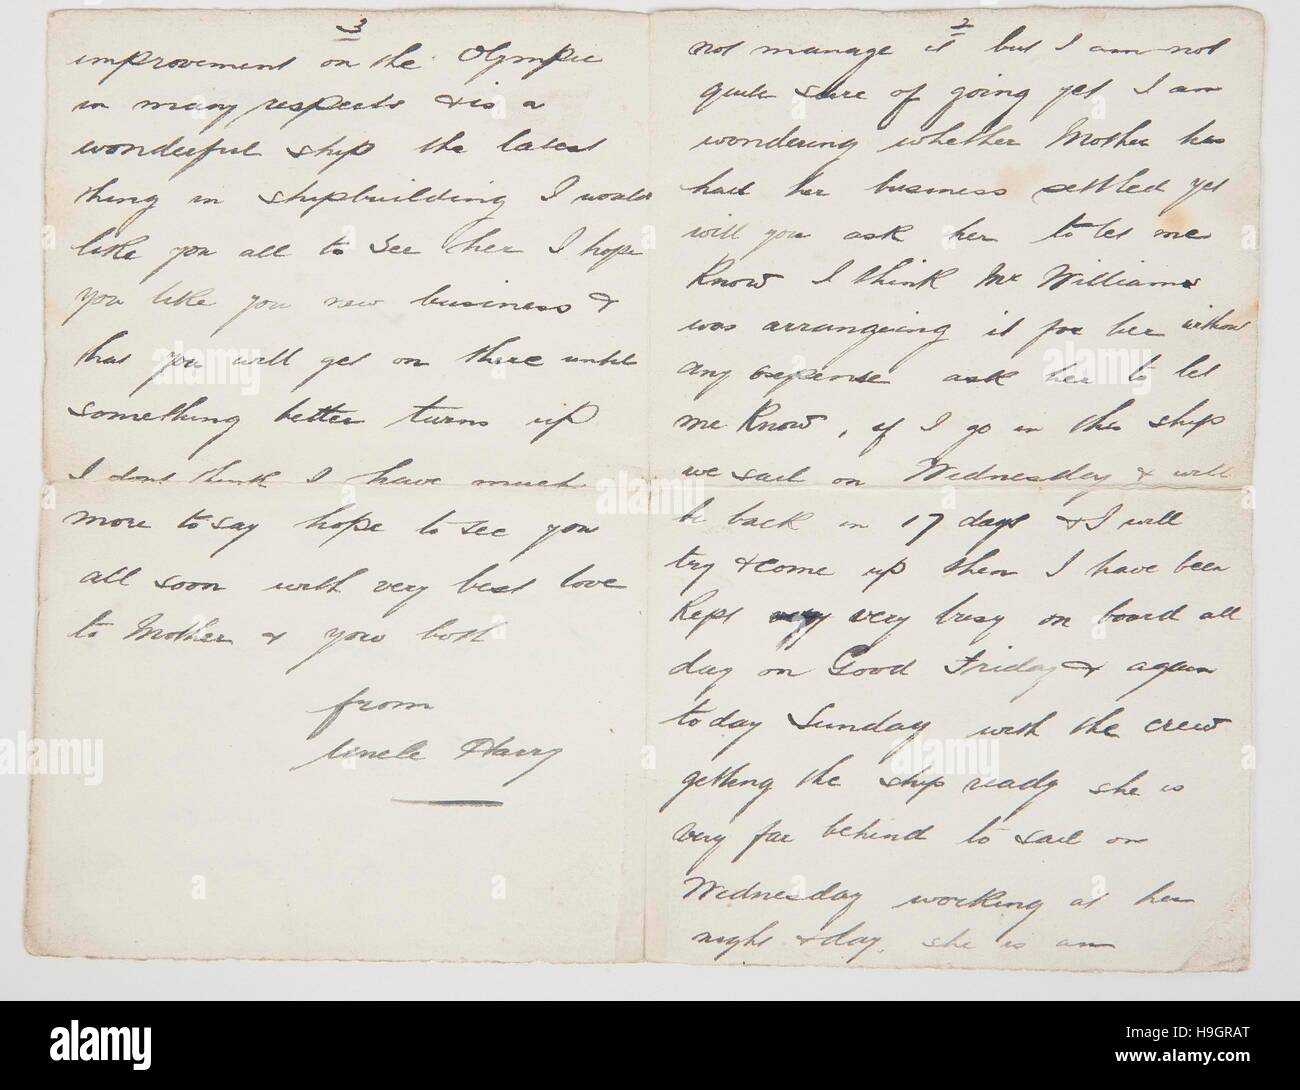 3
improvement on the Olympic
in many respects & is a
wonderful ship the latest
thing in shipbuilding I would
like you all to see her I hope
you like you new business &
that you will get on there until
something better turns up
I dont think I have much
more to say hope to see you
all soon with very best love
to Mother & your both
from
Uncle Harry
2
not manage it but I am not
quite sure of going yet I am
wondering whether Mother has
had her business settled yet
will you ask her to let me
know I think Mr Williams
was arrangeing it for her without
any expense ask her to let
me know, if I go in this ship
we sail on Wednesday & will
be back in 17 days & I will
try & come up then I have been
kept very very busy on board all
day on Good Friday & again
today Sunday with the crew
getting the ship ready she is
very far behind to sail on
Wednesday working at her
night & day. she is an
alamy
alamy
alamy
alamy
alamy
alamy
a
a
a
a
alamy
Image ID: H9GRAT
www.alamy.com